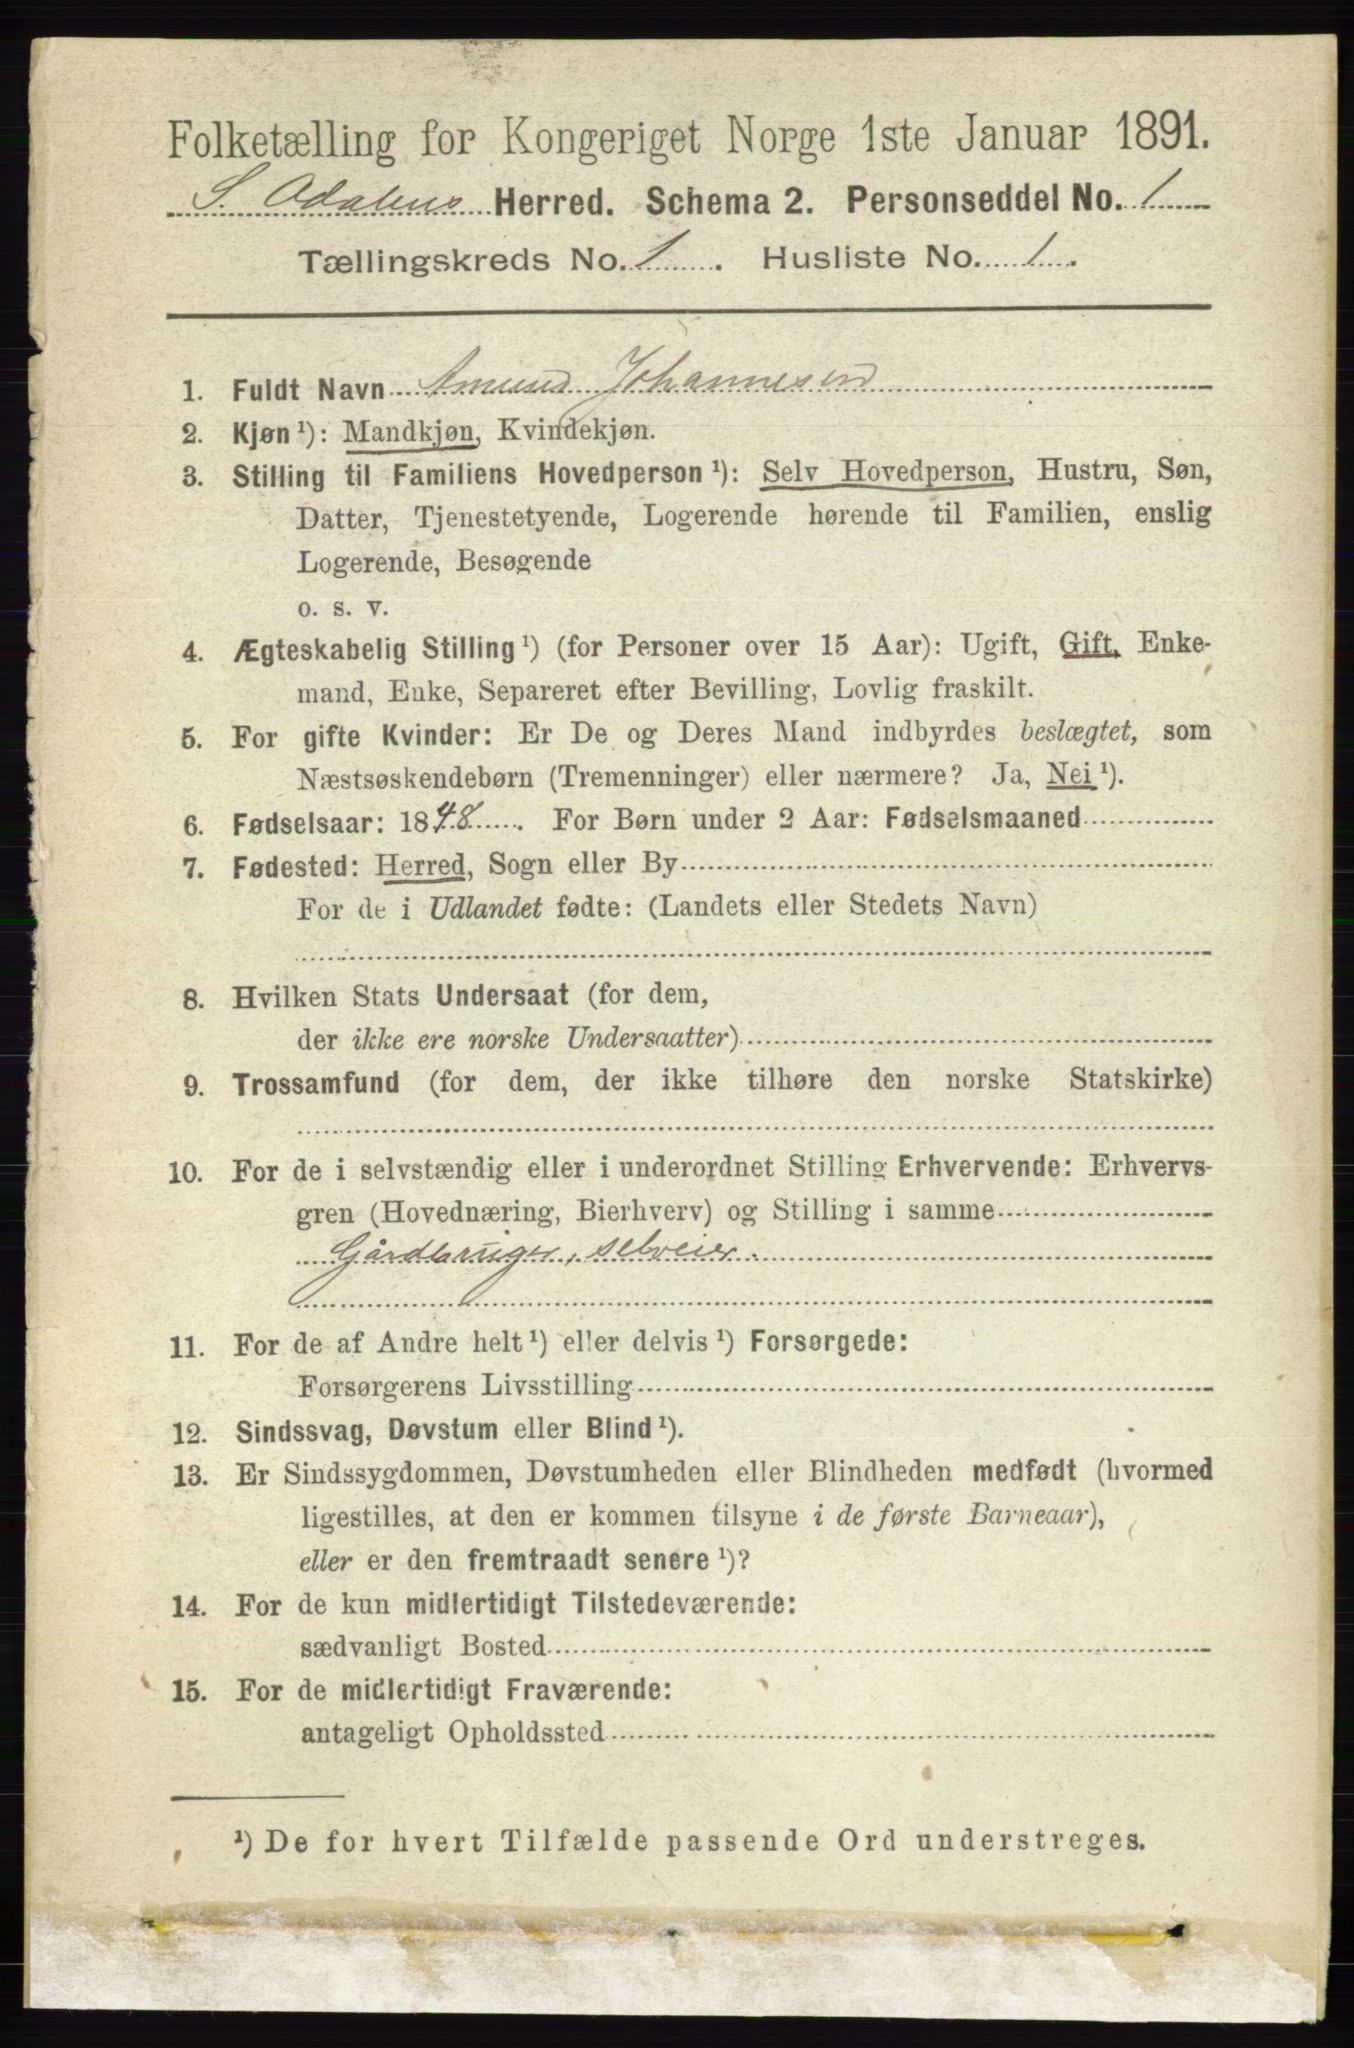 Folketælling for Kongeriget Norge 1ste Januar 1891.
S. Odalens Herred. Schema 2. Personseddel No. 1
Tællingskreds No. 1. Husliste No. 1.
1. Fuldt Navn Amund Johannesen
2. Kjøn ¹): Mandkjøn, Kvindekjøn.
3. Stilling til Familiens Hovedperson ¹): Selv Hovedperson, Hustru, Søn,
Datter, Tjenestetyende, Logerende hørende til Familien, enslig
Logerende, Besøgende
o. s. v.
4. Ægteskabelig Stilling ¹) (for Personer over 15 Aar): Ugift, Gift, Enke-
mand, Enke, Separeret efter Bevilling, Lovlig fraskilt.
5. For gifte Kvinder: Er De og Deres Mand indbyrdes beslægtet, som
Næstsøskendebørn (Tremenninger) eller nærmere? Ja, Nei ¹).
6. Fødselsaar: 1848. For Børn under 2 Aar: Fødselsmaaned
7. Fødested: Herred, Sogn eller By
For de i Udlandet fødte: (Landets eller Stedets Navn)
8. Hvilken Stats Undersaat (for dem,
der ikke ere norske Undersaatter)
9. Trossamfund (for dem, der ikke tilhøre den norske Statskirke)
10. For de i selvstændig eller i underordnet Stilling Erhvervende: Erhvervs-
gren (Hovednæring, Bierhverv) og Stilling i samme
Gårdbruger, selveier.
11. For de af Andre helt ¹) eller delvis ¹) Forsørgede:
Forsørgerens Livsstilling
12. Sindssvag, Døvstum eller Blind ¹).
13. Er Sindssygdommen, Døvstumheden eller Blindheden medfødt (hvormed
ligestilles, at den er kommen tilsyne i de første Barneaar),
eller er den fremtraadt senere ¹)?
14. For de kun midlertidigt Tilstedeværende:
sædvanligt Bosted
15. For de midlertidigt Fraværende:
antageligt Opholdssted
¹) De for hvert Tilfælde passende Ord understreges.